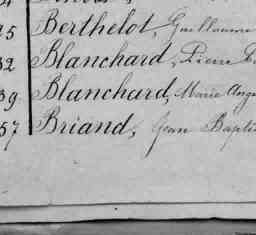 25 Berthelot, Guillaume
32 Blanchard, Pierre
39 Blanchard, Marie Ang
57 Briand, Jean Bapti